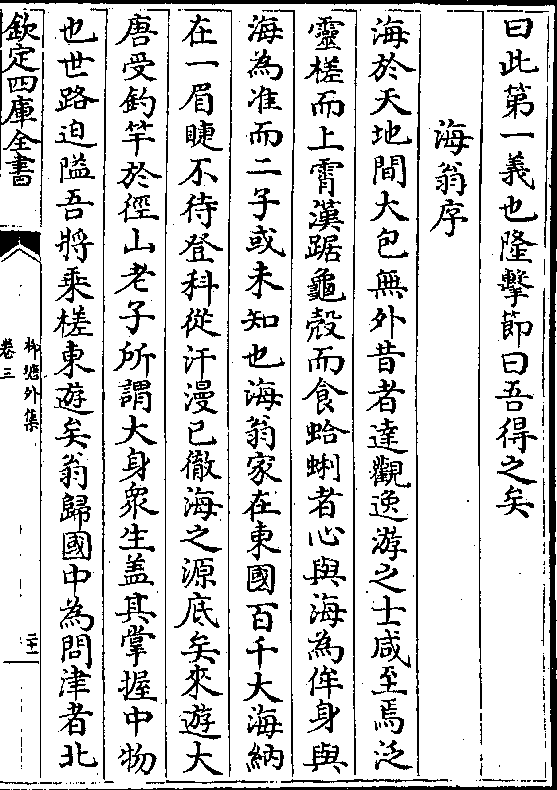 曰此第一義也隆擊節曰吾得之矣
海翁序
海於天地間大包無外昔者達觀逸游之士咸至焉泛
靈槎而上霄漢踞龜殼而食蛤蜊者心與海為侔身與
海為准而二子或未知也海翁家在東國百千大海納
在一眉睫不待登科從汗漫已徹海之源底矣來遊大
唐受釣竿於徑山老子所謂大身衆生蓋其掌握中物
也世路迫隘吾將乘槎東遊矣翁歸國中為問津者北
欽定四庫全書
柳塘外集
卷三
二十一